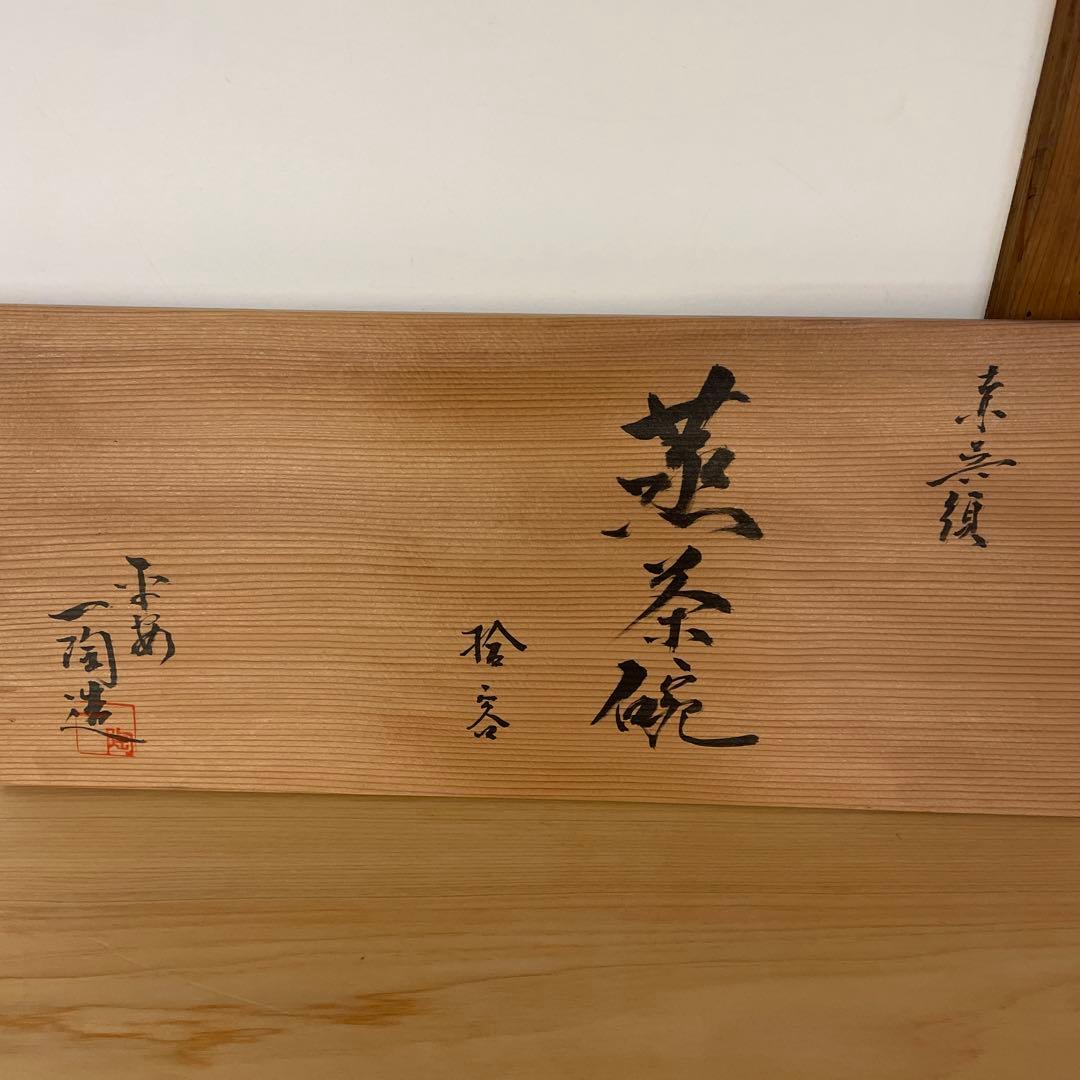 赤呉須
蒸茶碗
拾客
平安
一陶造
陶